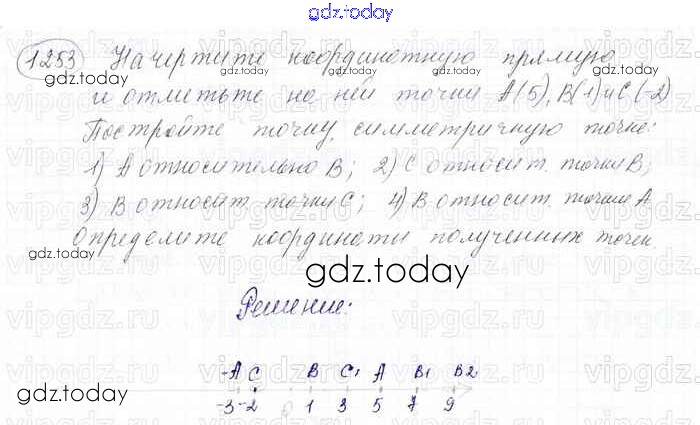 gdz.today
1253 Начертите координатную прямую
и отметьте на ней точки A(5), B(1) и C(-2)
Постройте точку, симметричную точке:
1) A относительно B; 2) C относит. точки B;
3) B относит. точки C; 4) B относит. точки A
Определите координаты полученных точек
gdz.today
Решение:
-A C B C1 A B1 B2
-3 -2 0 1 3 5 7 9